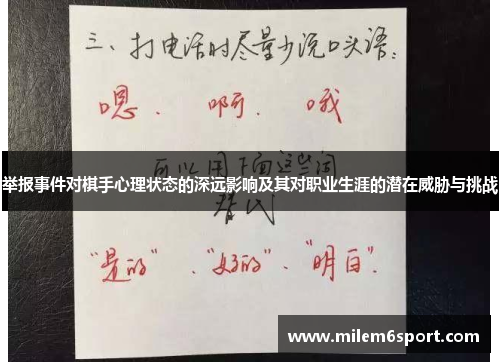 三、打电话时尽量少说口头语：
嗯. 啊. 哦
可以用下面这些词
举报事件对棋手心理状态的深远影响及其对职业生涯的潜在威胁与挑战
替代
“是的”、“好的”、“明白”.
www.milem6sport.com